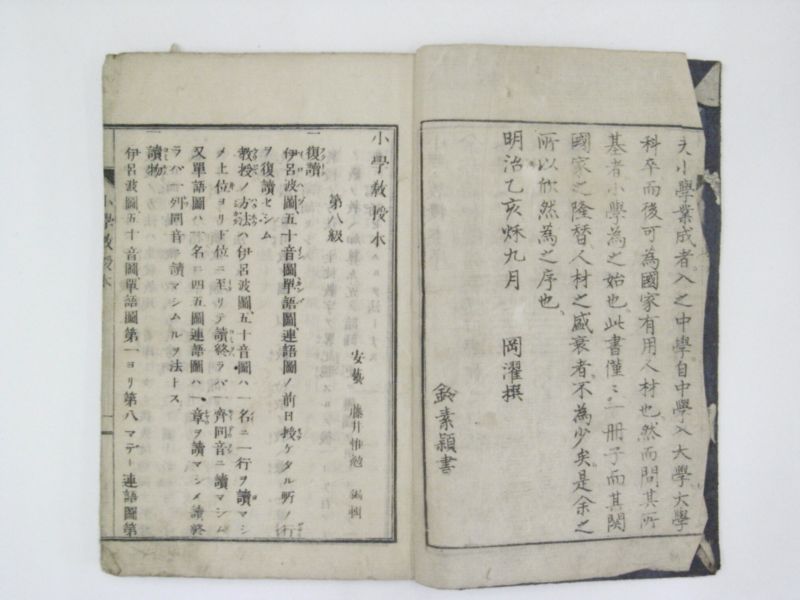 夫小學業成者入之中學自中學入大學大學
科卒而後可為國家有用人材也然而問其所
基者小學為之始也此書僅〻一冊子而其関
國家之隆替人材之盛衰者不為少矣是余之
所以欣然為之序也
明治乙亥秌九月　岡濯撰
鈴素顆書
小學敎授本
第八級
安藝　藤井惟勉　編輯
一復讀
伊呂波圖、五十音圖單語圖、連語圖ノ前日授ケタル所ノ行
ヲ復讀セシム
敎授ノ方法ハ伊呂波圖、五十音圖ハ一名ニ一行ヲ讀マシ
メ上位ヨリ下位ニ至リテ讀終ラバ一齊同音ニ讀マシム
又單語圖ハ一名ニ四五圖連語圖ハ一章ヲ讀マシメ讀終
ラバ一列同音ニ讀マシムルヲ法トス
一讀物
伊呂波圖五十音圖單語圖第一ヨリ第八マデ連語圖第
小學敎授本
一